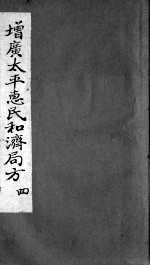 增廣太平惠民和濟局方 四